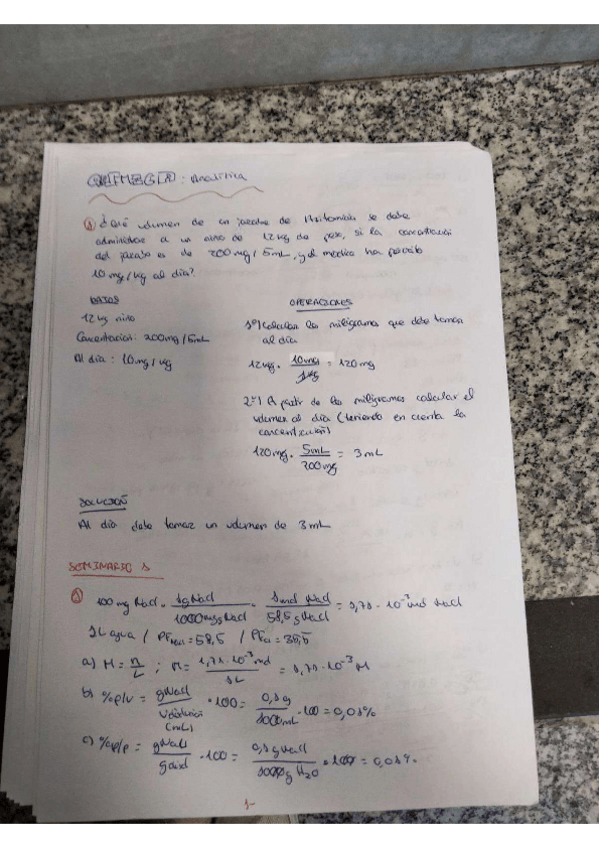 QUÍMICA: Analítica
1) ¿Qué volumen de un jarabe de se debe
administrar a un niño de 12 kg de peso, si la concentración
del jarabe es de 200 mg/5mL, y el médico ha
10 mg/kg al día?
DATOS
12 kg niño
Concentración: 200mg/5mL
Al día: 10mg/kg
OPERACIONES
1º) Calcular los miligramos que debe tomar
al día
12kg · 10mg/1kg = 120mg
2º) A partir de los miligramos calcular el
volumen al día (teniendo en cuenta la
concentración)
120mg · 5mL/200mg = 3mL
SOLUCIÓN
Al día debe tomar un volumen de 3mL
SEMINARIO 1
1) 100 mg NaCl · 1gNaCl/1000mgNaCl · 1mol NaCl/58,5 gNaCl = 1,71 · 10⁻³ mol NaCl
1L agua / PFNaCl = 58,5 / PFCl = 35,5
a) M = n/L ; M = 1,71 · 10⁻³ mol/1L = 1,71 · 10⁻³ M
b) %p/v = gNaCl/Vdisolución (mL) · 100 = 0,1g/1000mL · 100 = 0,01%
c) %p/p = gNaCl/gdisol · 100 = 0,1 gNaCl/1000g H₂O · 100 = 0,01%
1-